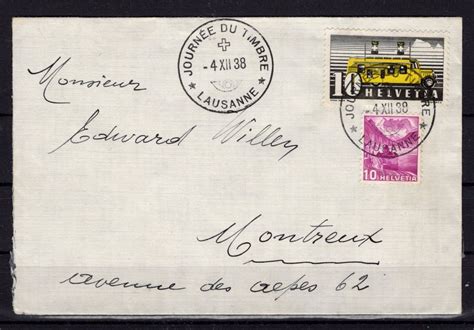 JOURNÉE DU TIMBRE
- 4 XII 38
★ LAUSANNE ★
10
HELVETIA
JOURNÉE DU TIMBRE
- 4 XII 38
★ LAUSANNE ★
10
HELVETIA
Monsieur
Edward Willen
Montreux
avenue des alpes 62